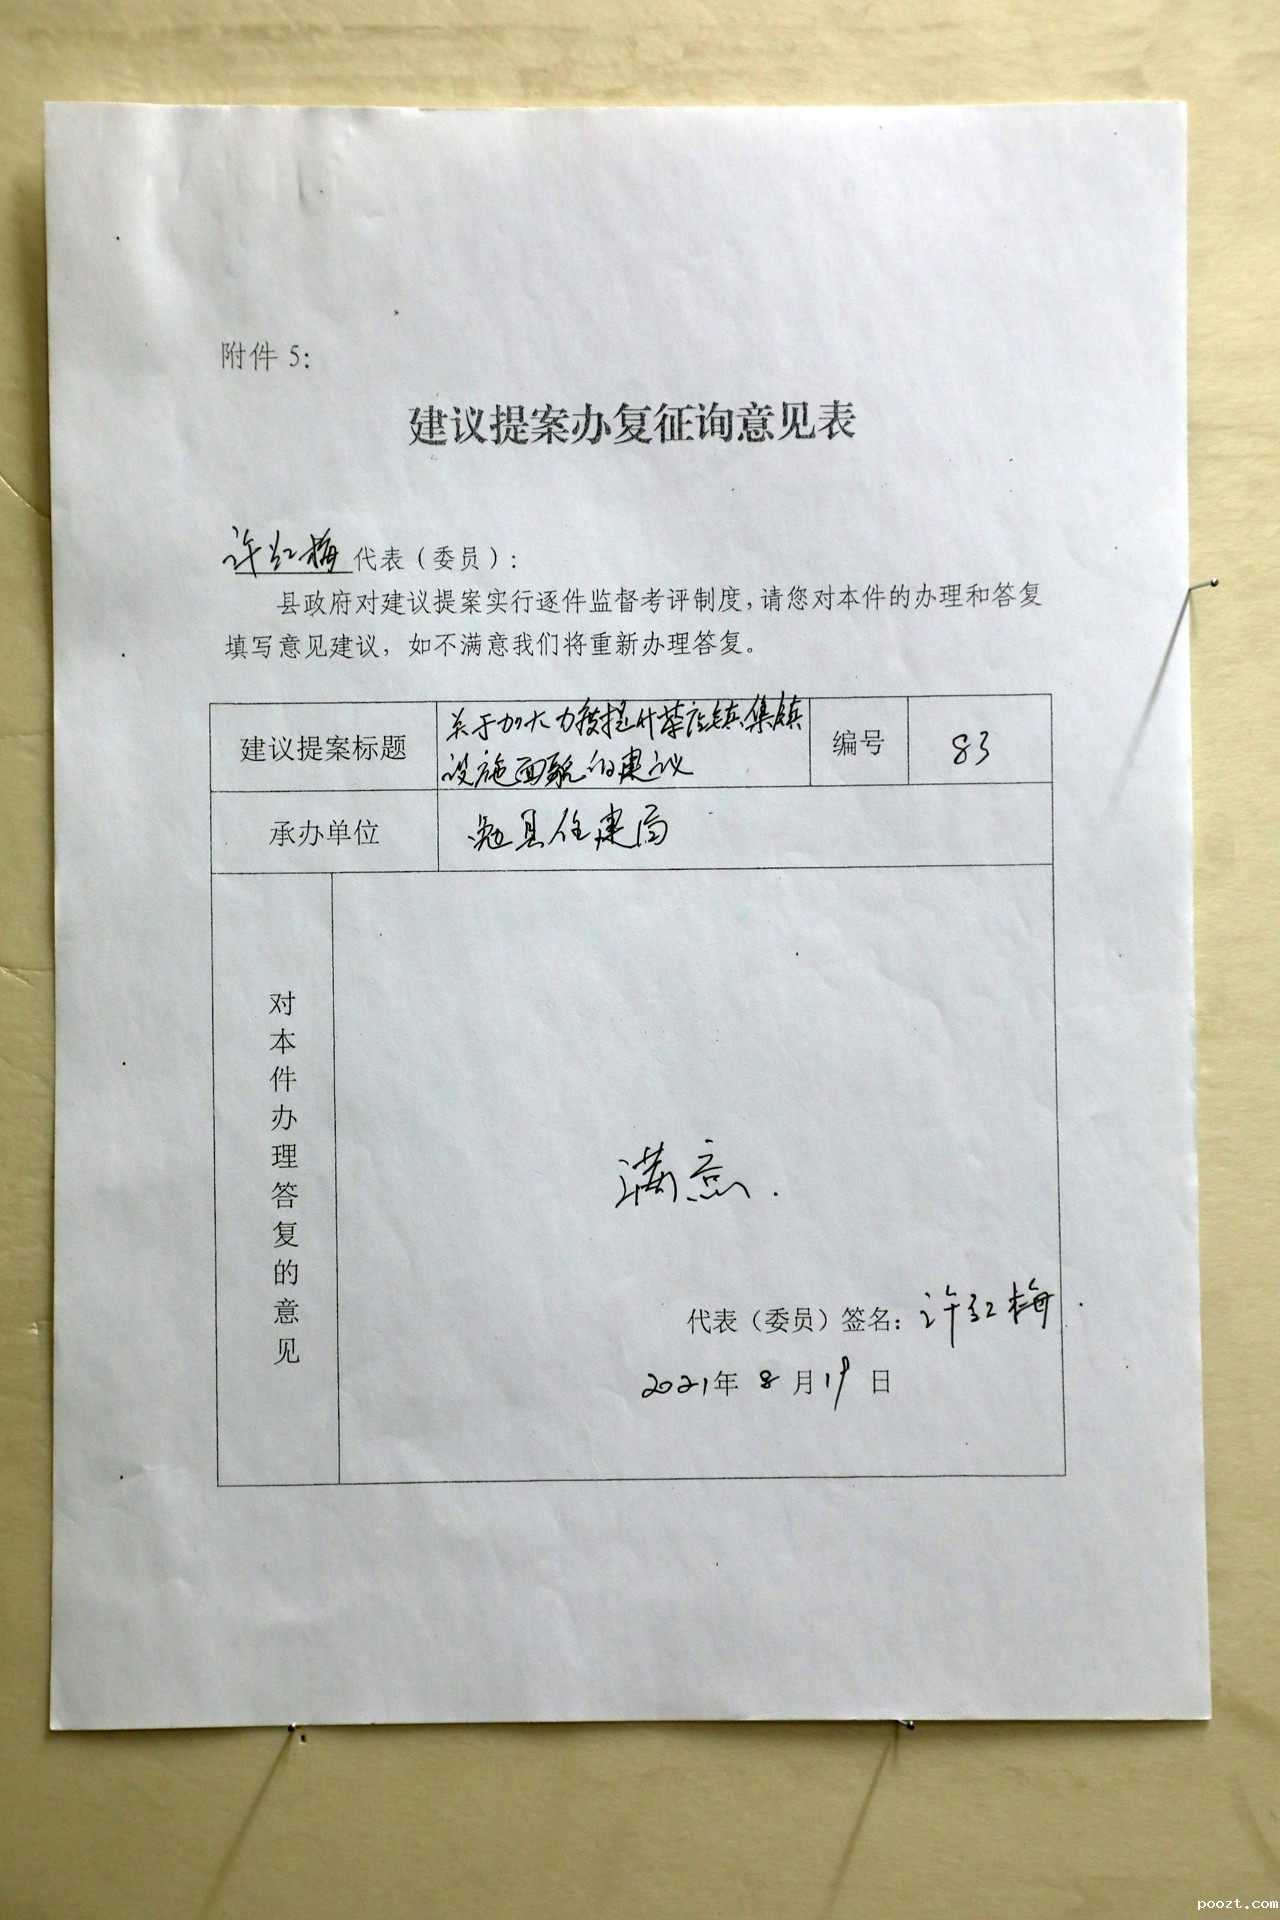 附件 5：
建议提案办复征询意见表
许红梅代表（委员）：
县政府对建议提案实行逐件监督考评制度，请您对本件的办理和答复
填写意见建议，如不满意我们将重新办理答复。
建议提案标题
关于加大力度提升茶店镇集镇
设施面貌的建议
编号
83
承办单位
勉县住建局
对本件办理答复的意见
满意.
代表（委员）签名：许红梅.
2021年 8 月19 日
poozt.com